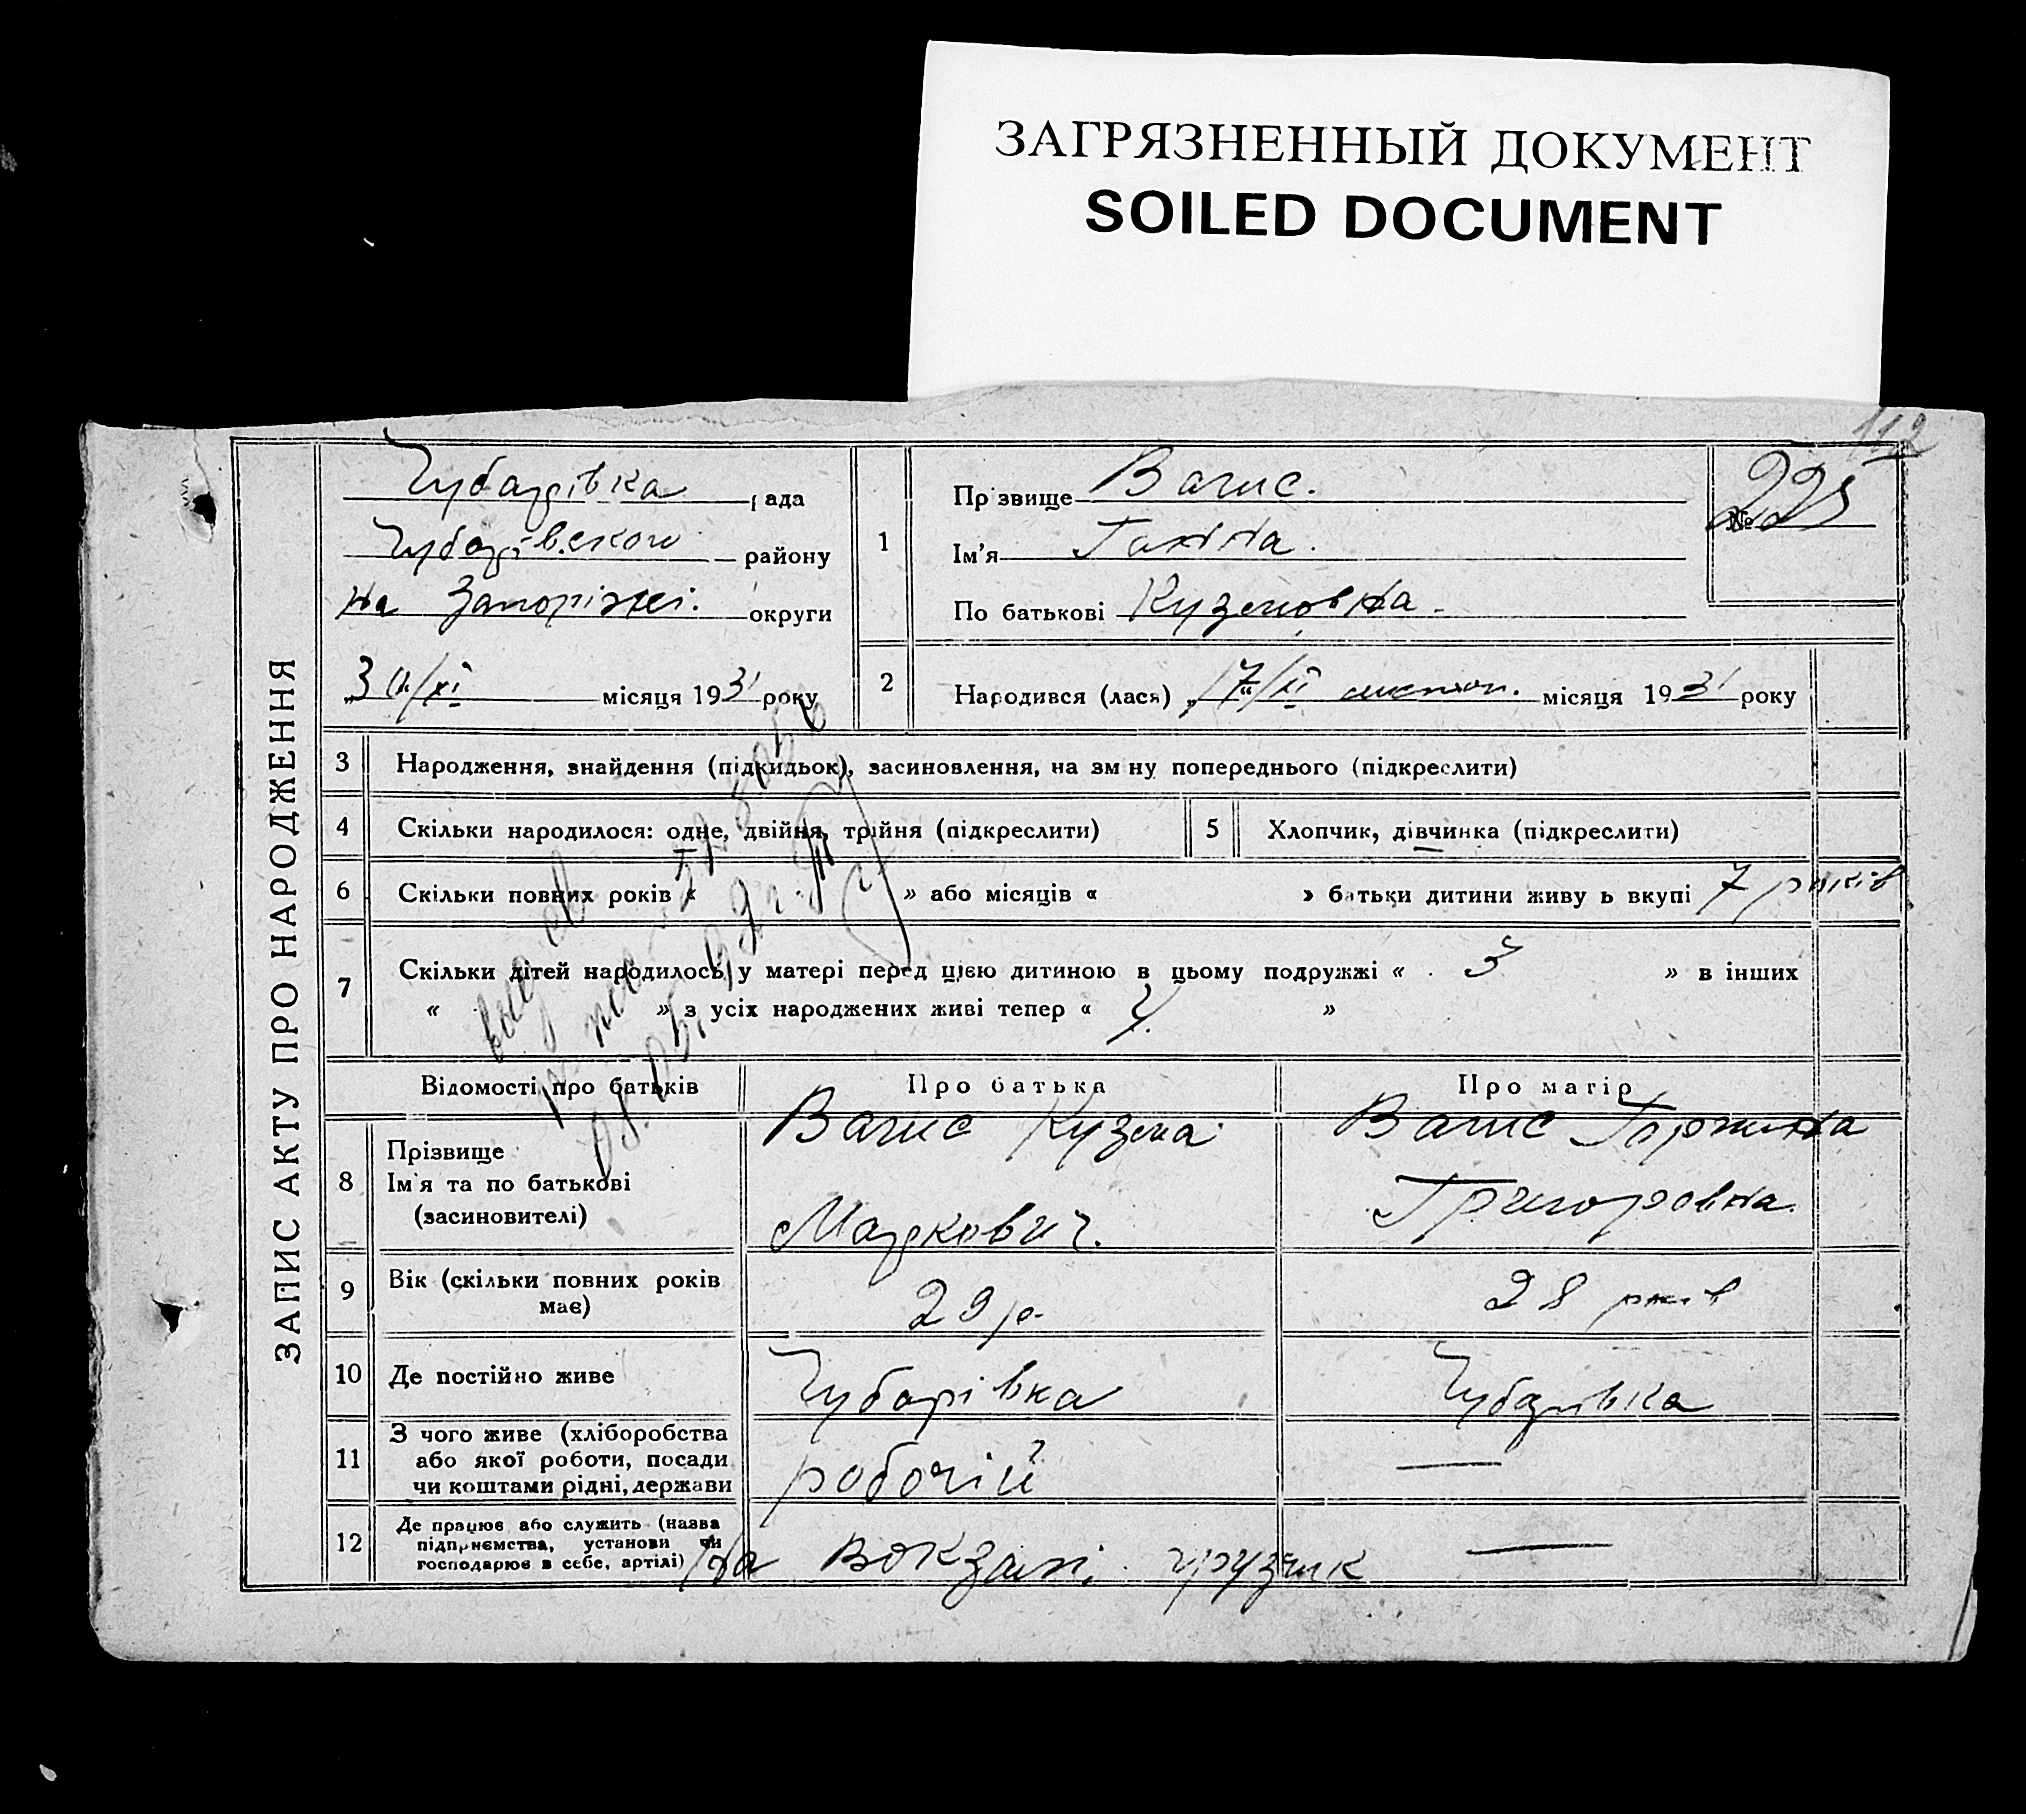 ЗАГРЯЗНЕННЫЙ ДОКУМЕНТ
SOILED DOCUMENT
112
ЗАПИС АКТУ ПРО НАРОДЖЕННЯ
Чубарівка рада
Чубарівського району
на Запоріжжі округи
„30/XI місяця 1931 року
1
Прізвище Вагис.
Ім'я Ганна.
По батькові Кузьмовна.
№ 225
2
Народився (лася) „17/XI листоп. місяця 1931 року
3 Народження, знайдення (підкидьок), засиновлення, на зміну попереднього (підкреслити)
4 Скільки народилося: одне, двійня, трійня (підкреслити)
5 Хлопчик, дівчинка (підкреслити)
6 Скільки повних років « » або місяців « » батьки дитини живуть вкупі 7 років
7 Скільки дітей народилось у матері перед цією дитиною в цьому подружжі « 3 » в інших
« » з усіх народжених живі тепер « »
Відомості про батьків Про батька Про матір
8 Прізвище
Ім'я та по батькові
(засиновителі)
Вагис Кузьма
Маркович.
Вагис
Григоровна.
9 Вік (скільки повних років
має)
29 р.
28 років
10 Де постійно живе Чубарівка Чубарівка
11 З чого живе (хліборобства
або якої роботи, посади
чи коштами рідні, держави
робочій —
12 Де працює або служить (назва
підприємства, установи чи
господарює в себе, артілі)
На вокзалі. грузчик —